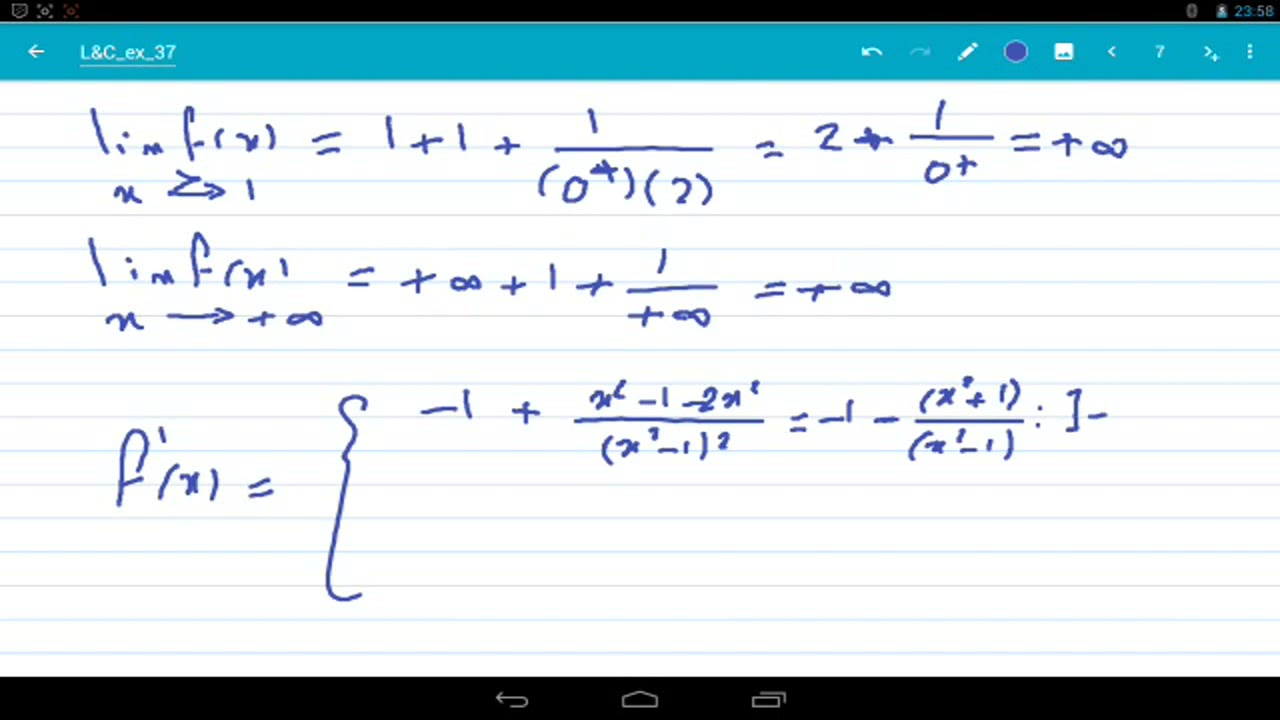 23:58
L&C_ex_37
7
lim f(x) = 1 + 1 + 1/((0⁺)(2)) = 2 + 1/0⁺ = +∞
x >→ 1
lim f(x) = +∞ + 1 + 1/+∞ = +∞
x → +∞
f'(x) = { -1 + (x² - 1 - 2x²)/(x² - 1)² = -1 - (x² + 1)/(x² - 1) : ]-